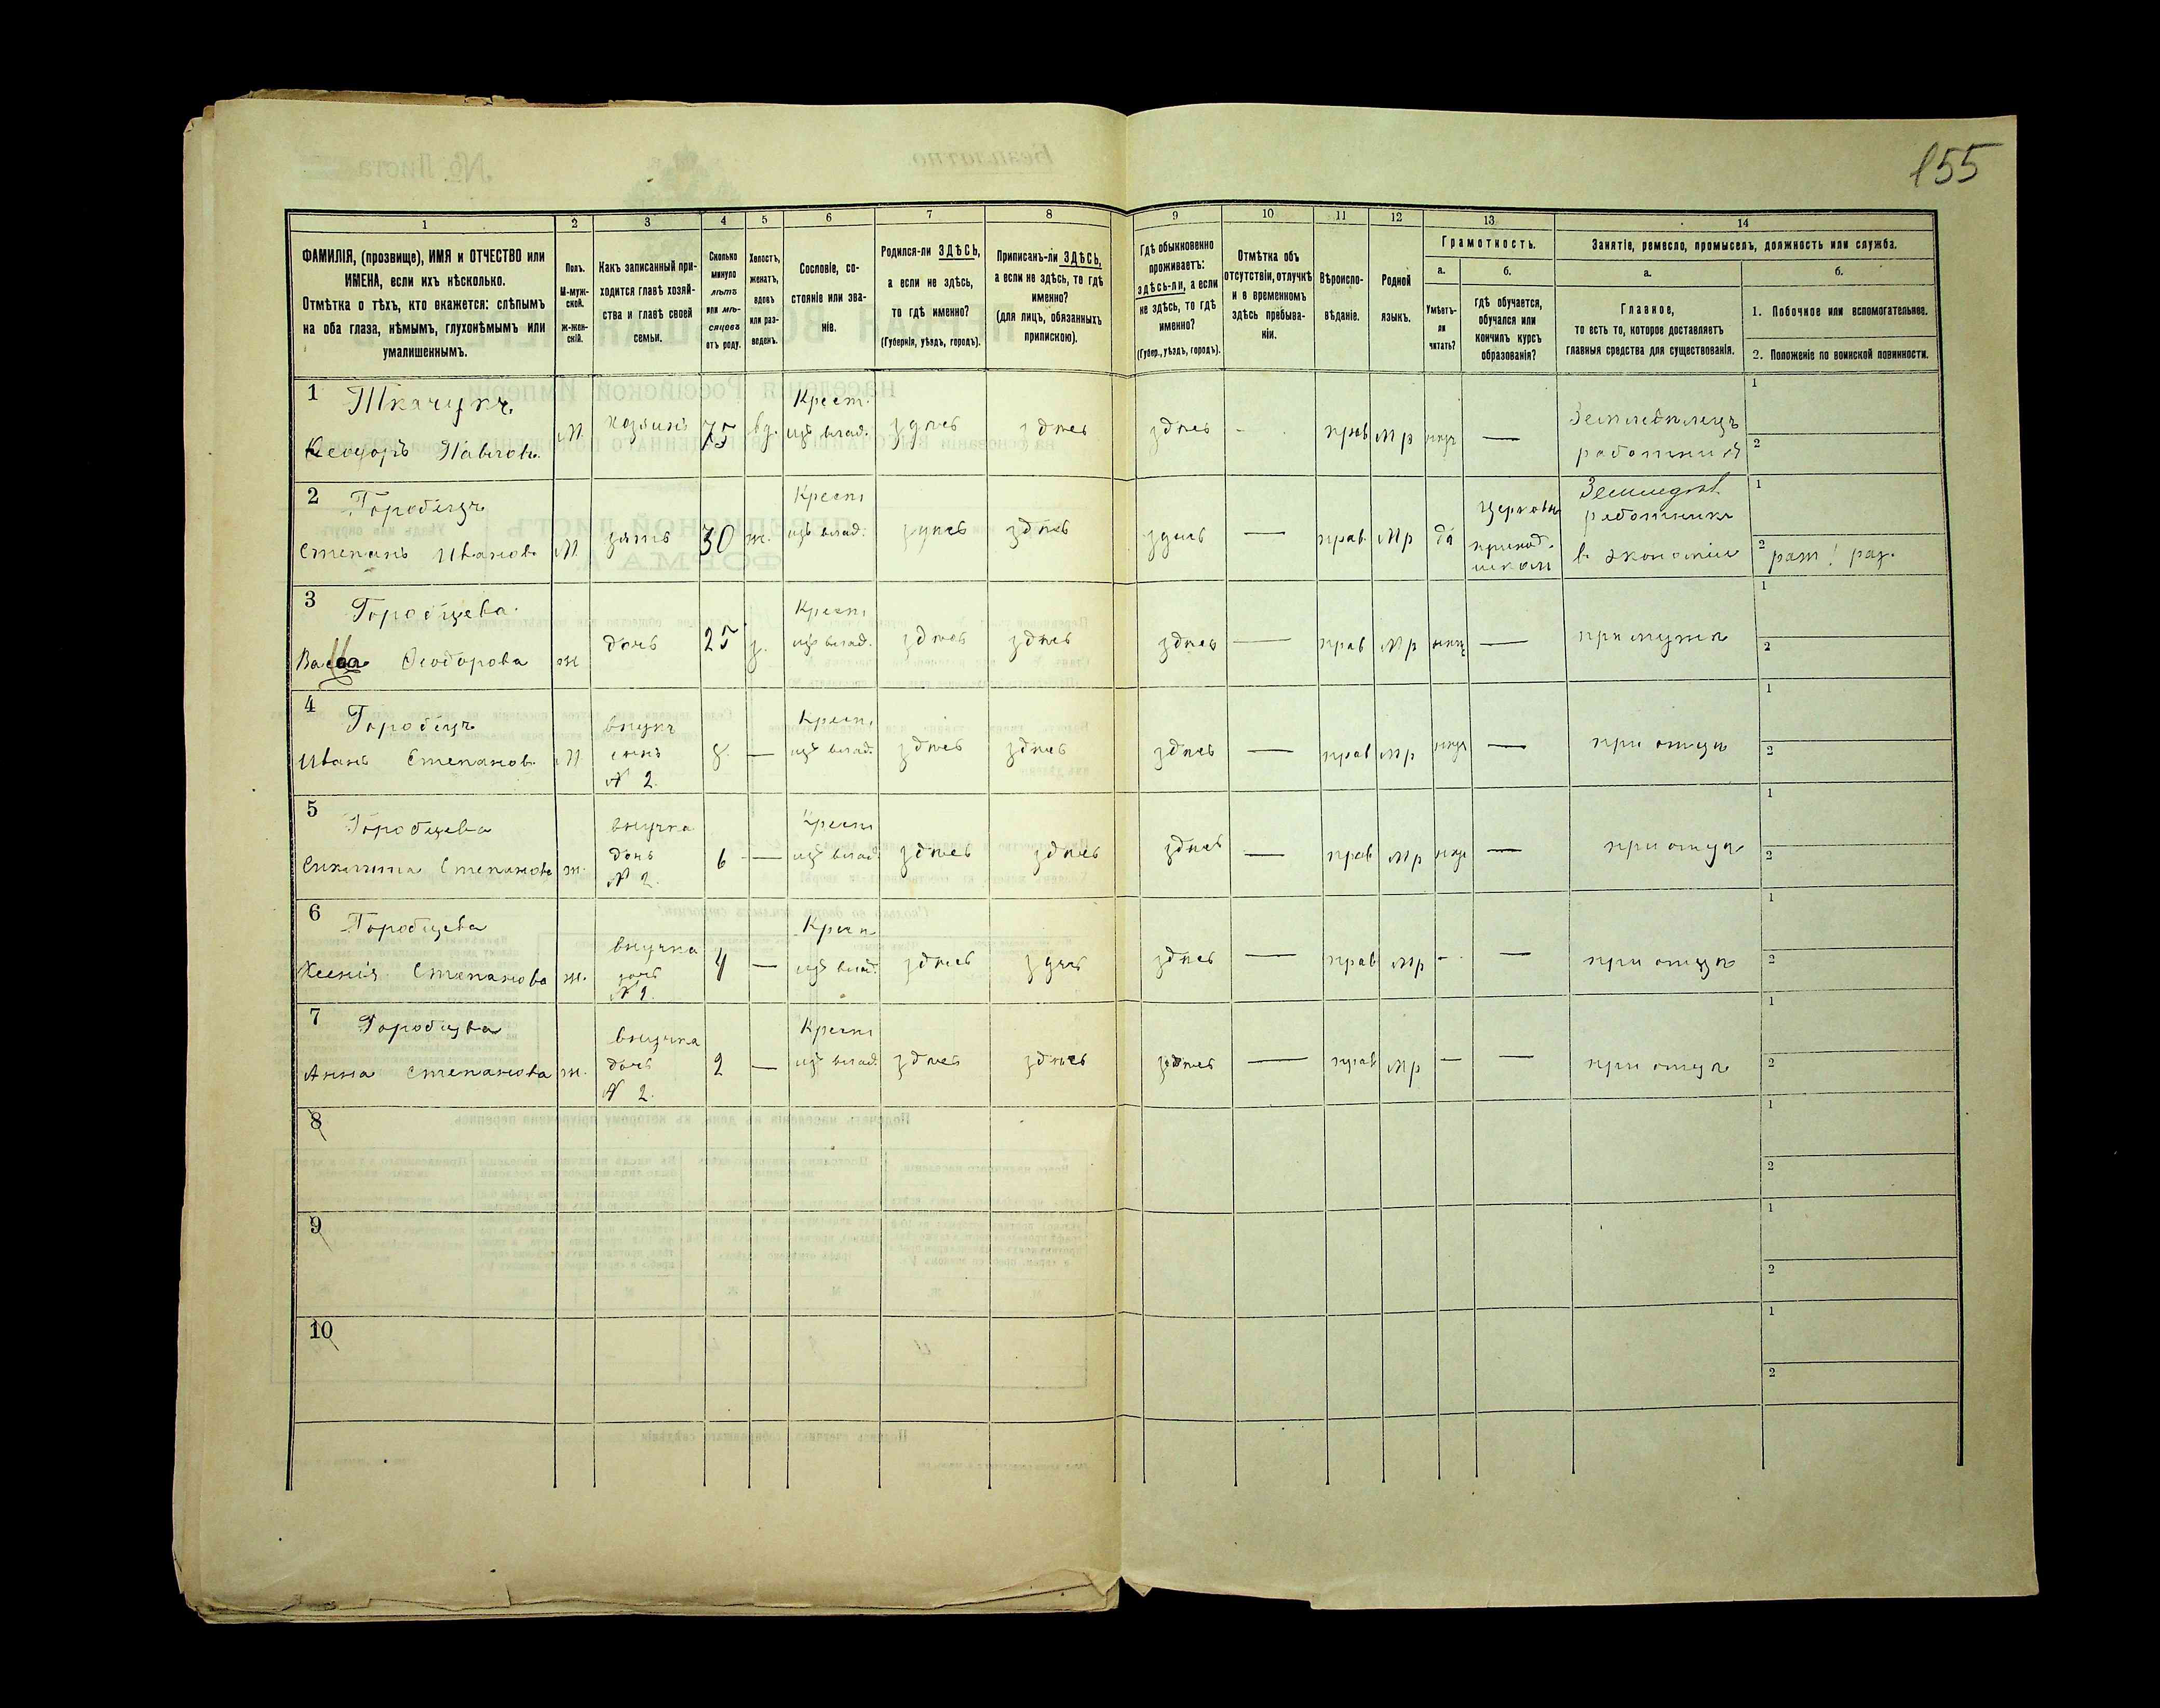 155
1 2 3 4 5 6 7 8 9 10 11 12 13 14
ФАМИЛІЯ, (прозвище), ИМЯ и ОТЧЕСТВО или
ИМЕНА, если ихъ нѣсколько.
Отмѣтка о тѣхъ, кто окажется: слѣпымъ
на оба глаза, нѣмымъ, глухонѣмымъ или
умалишеннымъ.
Полъ.
М-муж-
ской.
ж-жен-
скій.
Какъ записанный при-
ходится главѣ хозяй-
ства и главѣ своей
семьи.
Сколько
минуло
лѣтъ
или мѣ-
сяцевъ
отъ роду.
Холостъ,
женатъ,
вдовъ
или раз-
веденъ.
Сословіе, со-
стояніе или зва-
ніе.
Родился-ли ЗДѢСЬ,
а если не здѣсь,
то гдѣ именно?
(Губернія, уѣздъ, городъ).
Приписанъ-ли ЗДѢСЬ,
а если не здѣсь, то гдѣ
именно?
(для лицъ, обязанныхъ
припискою).
Гдѣ обыкновенно
проживаетъ:
здѣсь-ли, а если
не здѣсь, то гдѣ
именно?
(Губер., уѣздъ, городъ).
Отмѣтка объ
отсутствіи, отлучкѣ
и о временномъ
здѣсь пребыва-
ніи.
Вѣроиспо-
вѣданіе.
Родной
языкъ.
Грамотность.
а.
Умѣетъ-
ли
читать?
б.
гдѣ обучается,
обучался или
кончилъ курсъ
образованія?
Занятіе, ремесло, промыселъ, должность или служба.
а.
Главное,
то есть то, которое доставляетъ
главныя средства для существованія.
б.
1. Побочное или вспомогательное.
2. Положеніе по воинской повинности.
1
Ткачукъ
Ѳеодоръ Павловъ
М хозяинъ 75 вд.
Крест.
изъ влад.
здѣсь здѣсь здѣсь - прав мр —
Земледѣлецъ
1
2
2
Городецъ
Степанъ Ивановъ
М зять 30 ж.
Крест
изъ влад.
здѣсь здѣсь здѣсь — прав. мр да
Церковн
приход.
школы
Земледѣл
работникъ
в экономіи
1
2
3
Городцева
Васса Ѳеодорова
ж дочь 25 з.
Крест
изъ влад.
здѣсь здѣсь здѣсь — прав мр —
при мужѣ
1
2
4
Городецъ
Иванъ Степановъ
М
внукъ
сынъ
№ 2.
8 —
Крест
изъ влад.
здѣсь здѣсь здѣсь — прав мр —
при отцѣ
1
2
5
Городцева
Степанова
ж.
внучка
дочь
№ 2.
6 —
Крест
изъ влад.
здѣсь здѣсь здѣсь — прав мр —
при отцѣ
1
2
6
Городцева
Ксенія Степанова
ж.
внучка
дочь
№ 2.
4 —
Крест
изъ влад.
здѣсь здѣсь здѣсь — прав мр - —
при отцѣ
1
2
7
Городцева
Анна Степанова
ж.
внучка
дочь
№ 2.
2 —
Крест
изъ влад.
здѣсь здѣсь здѣсь — прав мр — —
при отцѣ
1
2
8
1
2
9
1
2
10
1
2